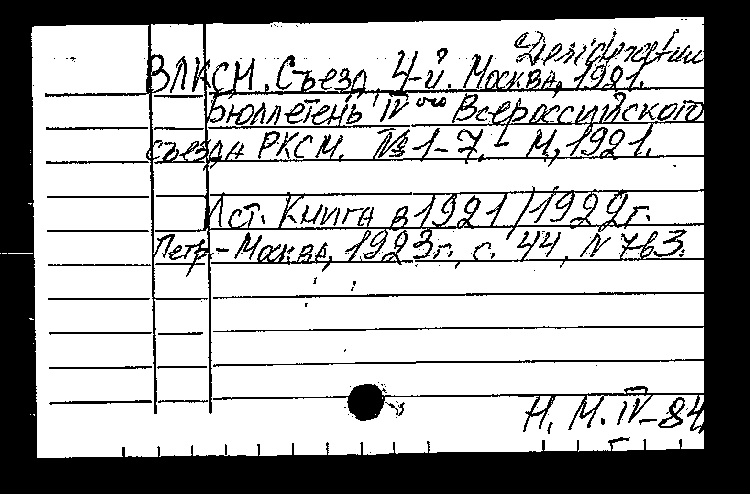 Desideratum
ВЛКСМ. Съезд, 4-й. Москва, 1921.
Бюллетень IV ого Всероссийского
съезда РКСМ. №1-7.- М, 1921.
Ист. Книга в 1921/1922г.
Петр.-Москва, 1923г., с. 44, N 763.
Н. М. IV-84